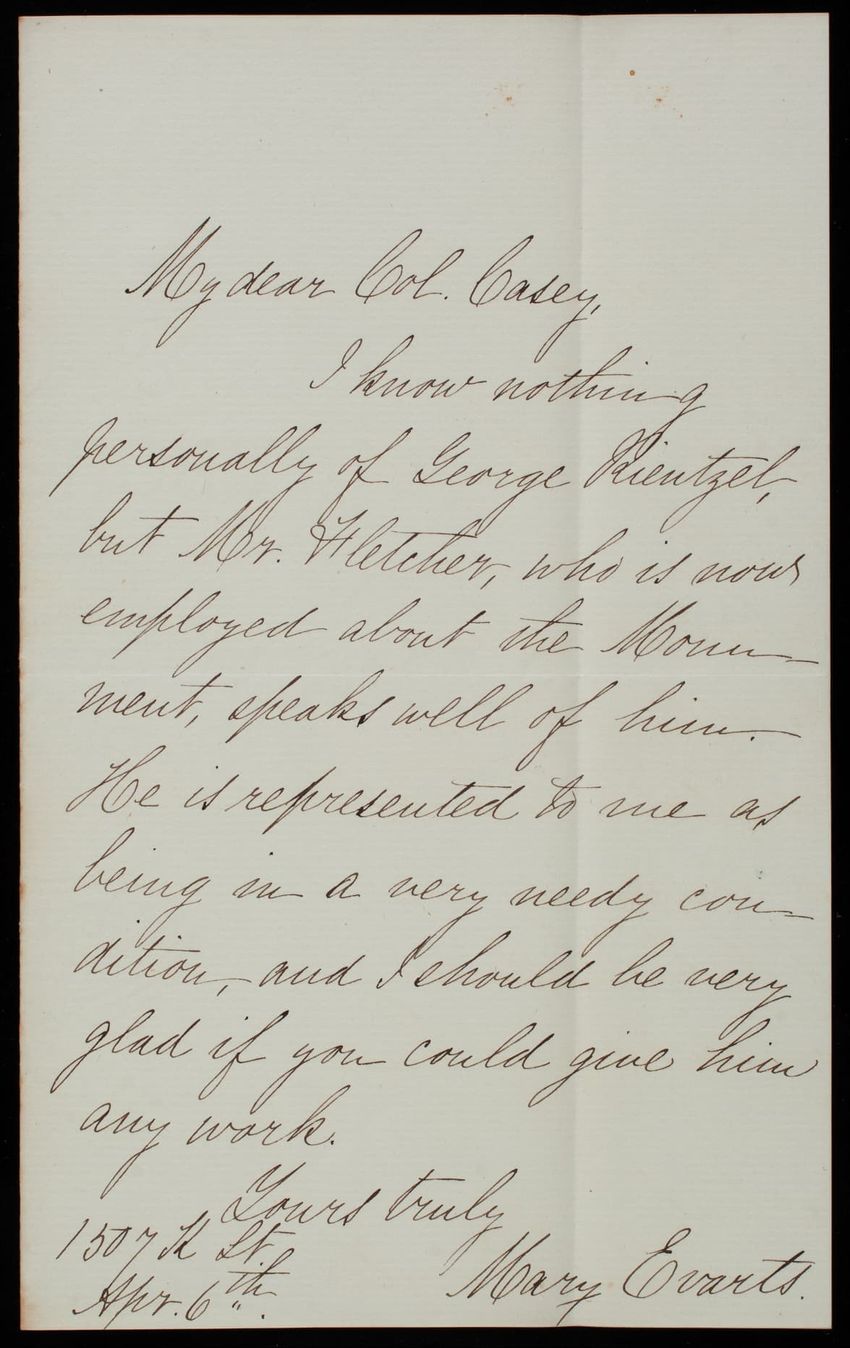 My dear Col. Casey,
I know nothing
personally of George Kientzel,
but Mr. Fletcher, who is now
employed about the Monu-
ment, speaks well of him.
He is represented to me as
being in a very needy con-
dition, and I should be very
glad if you could give him
any work.
Yours truly
Mary Evarts.
1507 K St.
Apr. 6th.